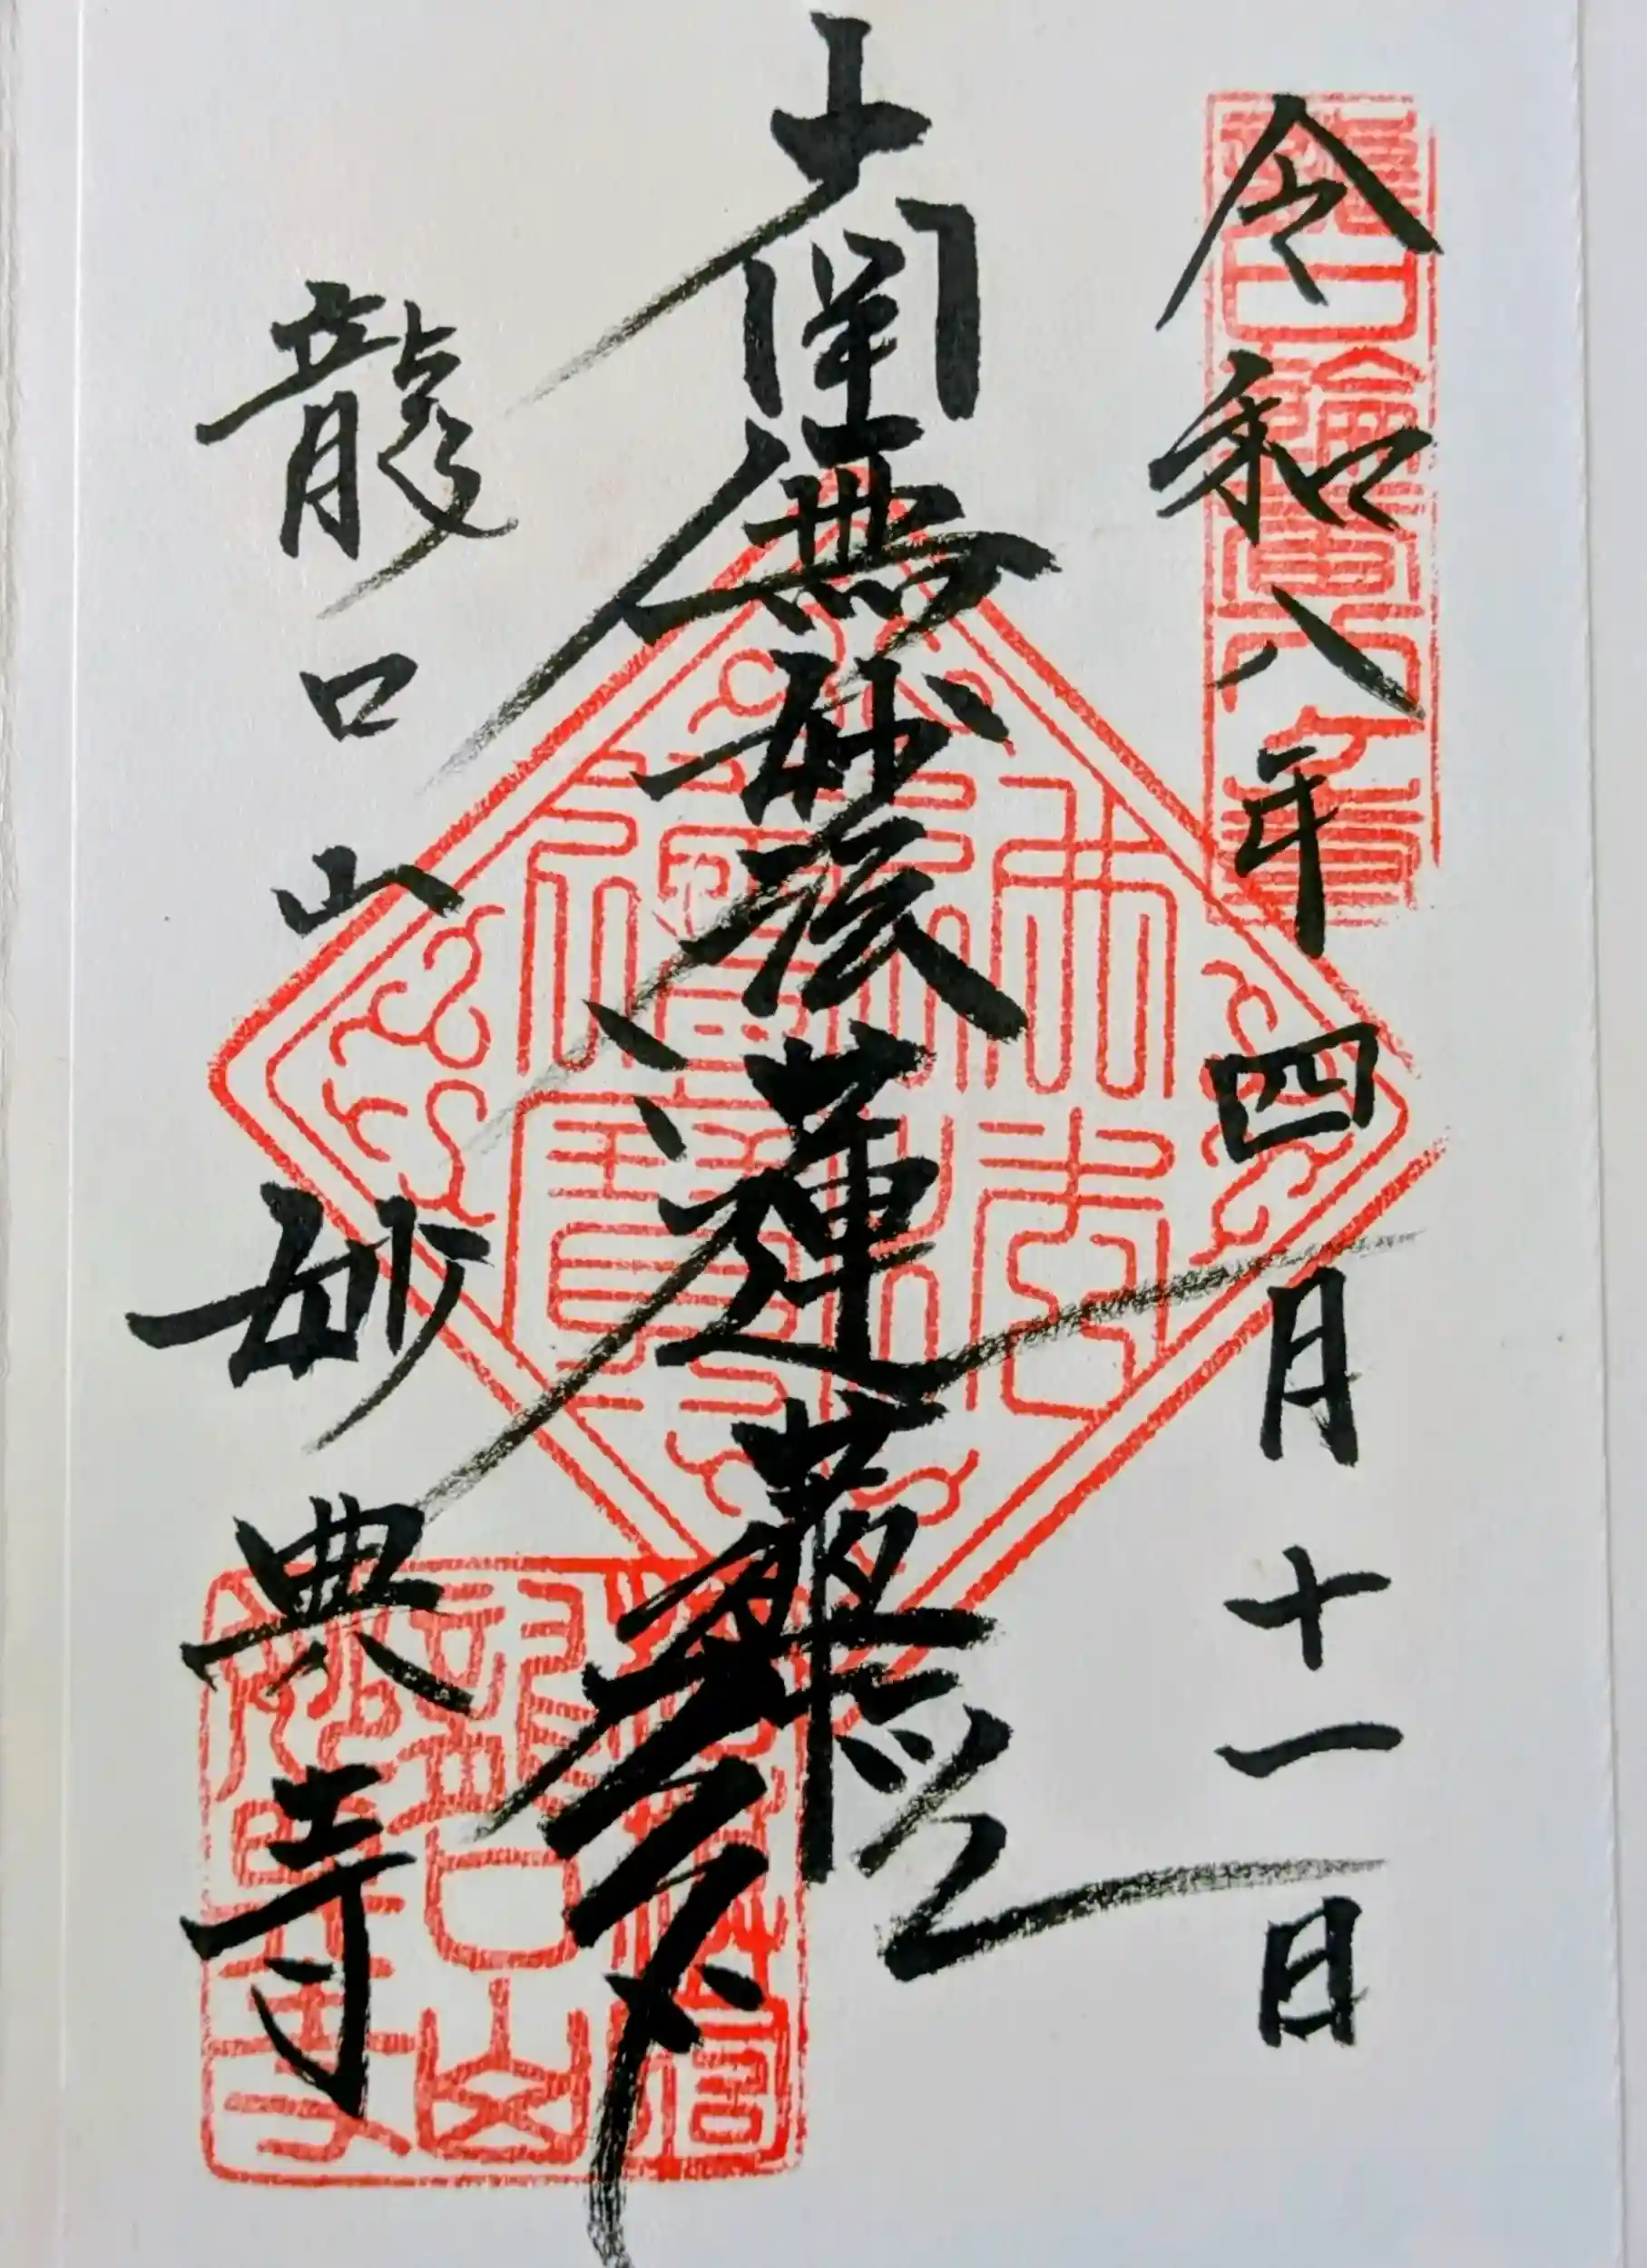 令和八年四月十一日
南無妙法蓮華経
龍口山妙典寺